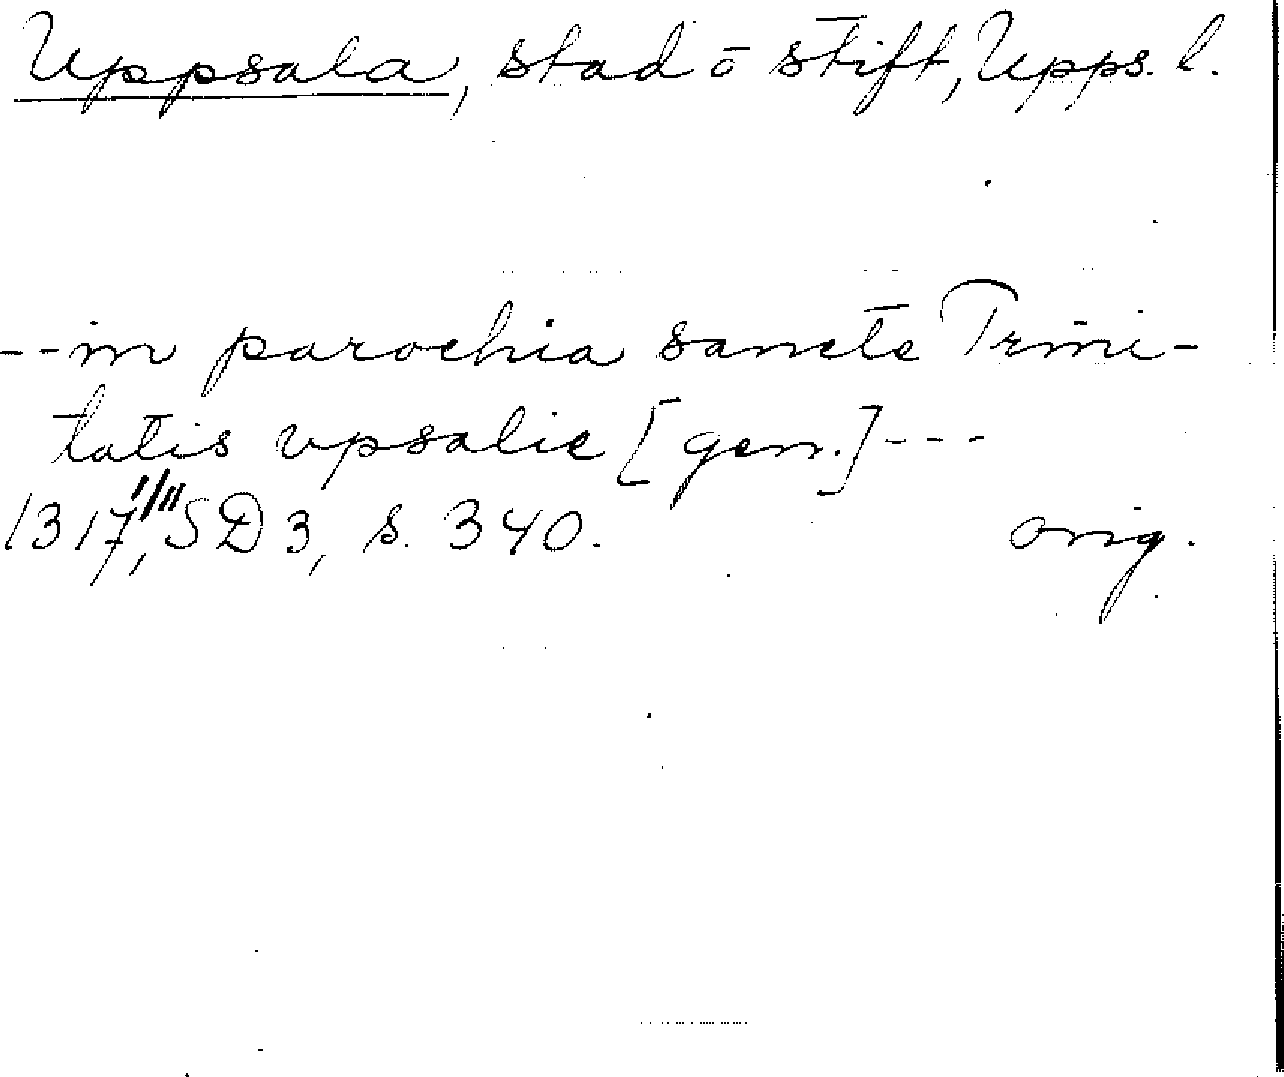 Uppsala, stad o stift, Upps. l.
--in parochia sancte Trini-
tatis vpsalie [gen.]---
1317 1/11, SD 3, s. 340. orig.